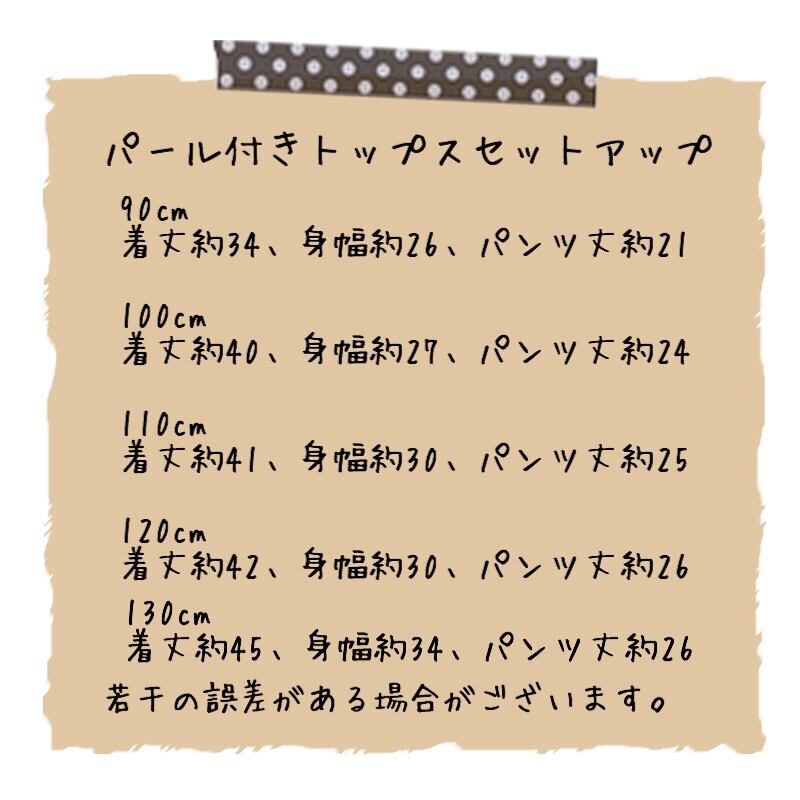 パール付きトップスセットアップ
90cm
着丈約34、身幅約26、パンツ丈約21
100cm
着丈約40、身幅約27、パンツ丈約24
110cm
着丈約41、身幅約30、パンツ丈約25
120cm
着丈約42、身幅約30、パンツ丈約26
130cm
着丈約45、身幅約34、パンツ丈約26
若干の誤差がある場合がございます。